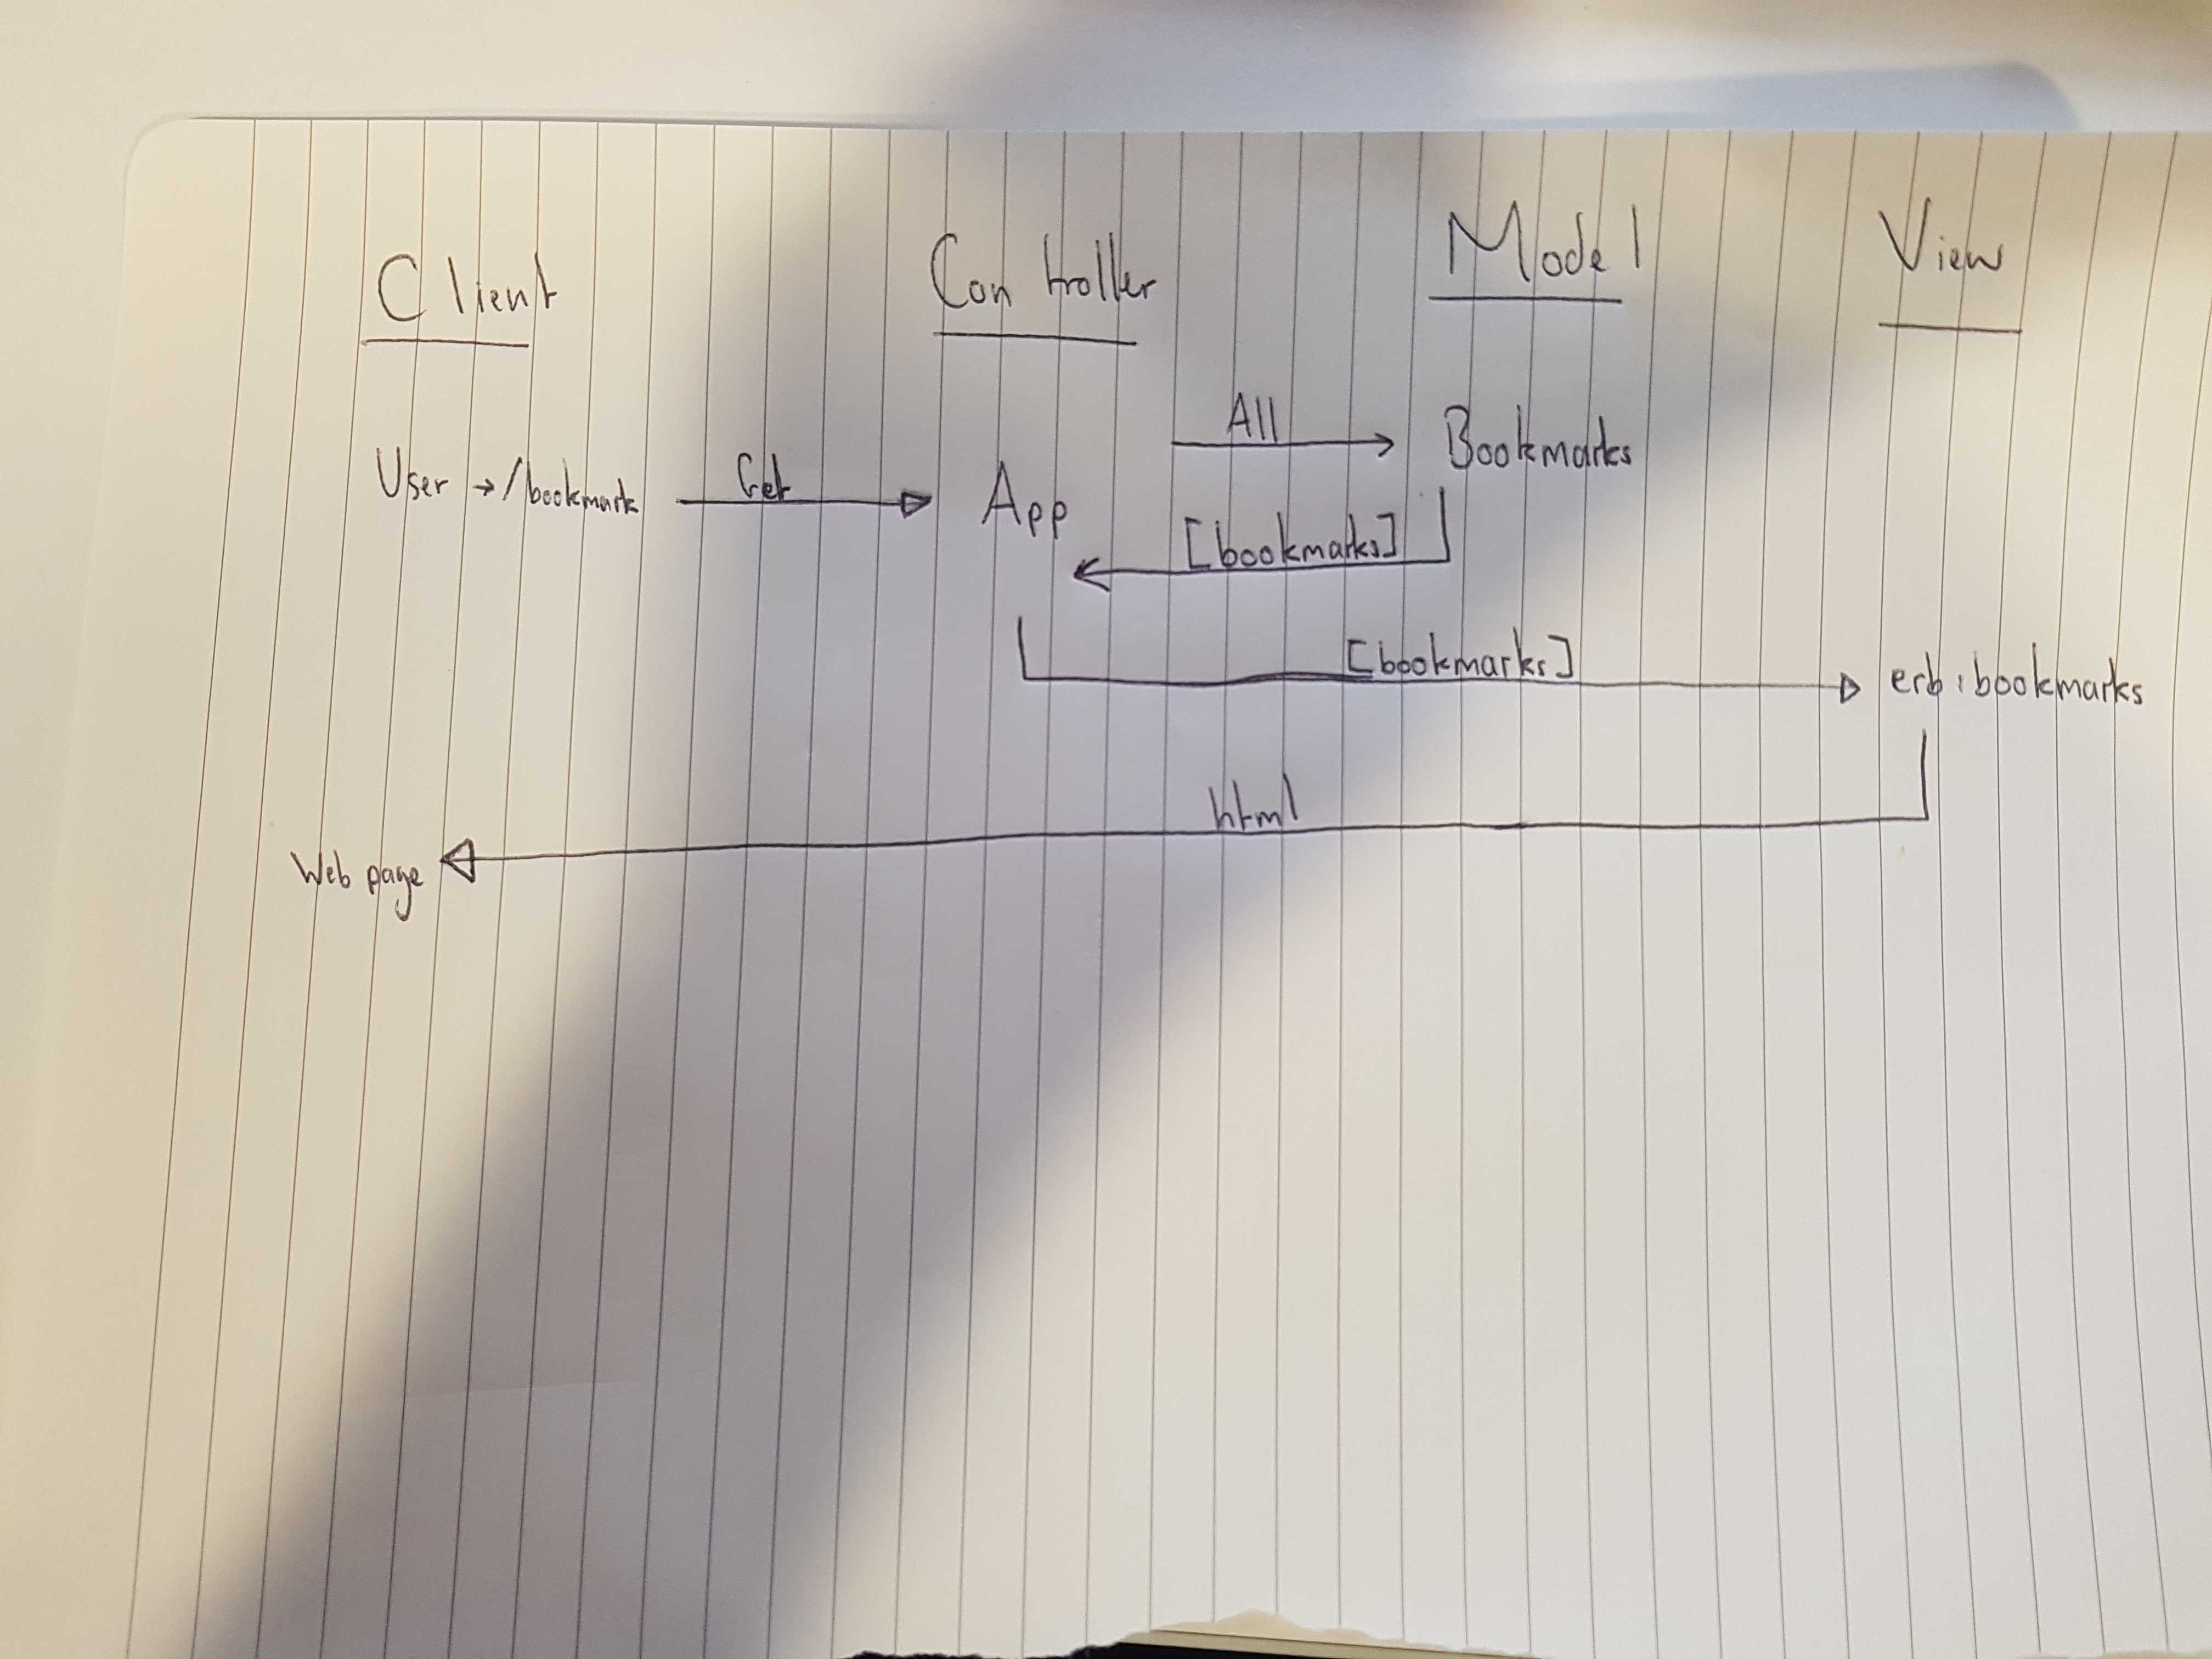 Client Controller Model View
All
User →/bookmark Get App Bookmarks
[bookmarks]
[bookmarks] erb:bookmarks
html
Web page